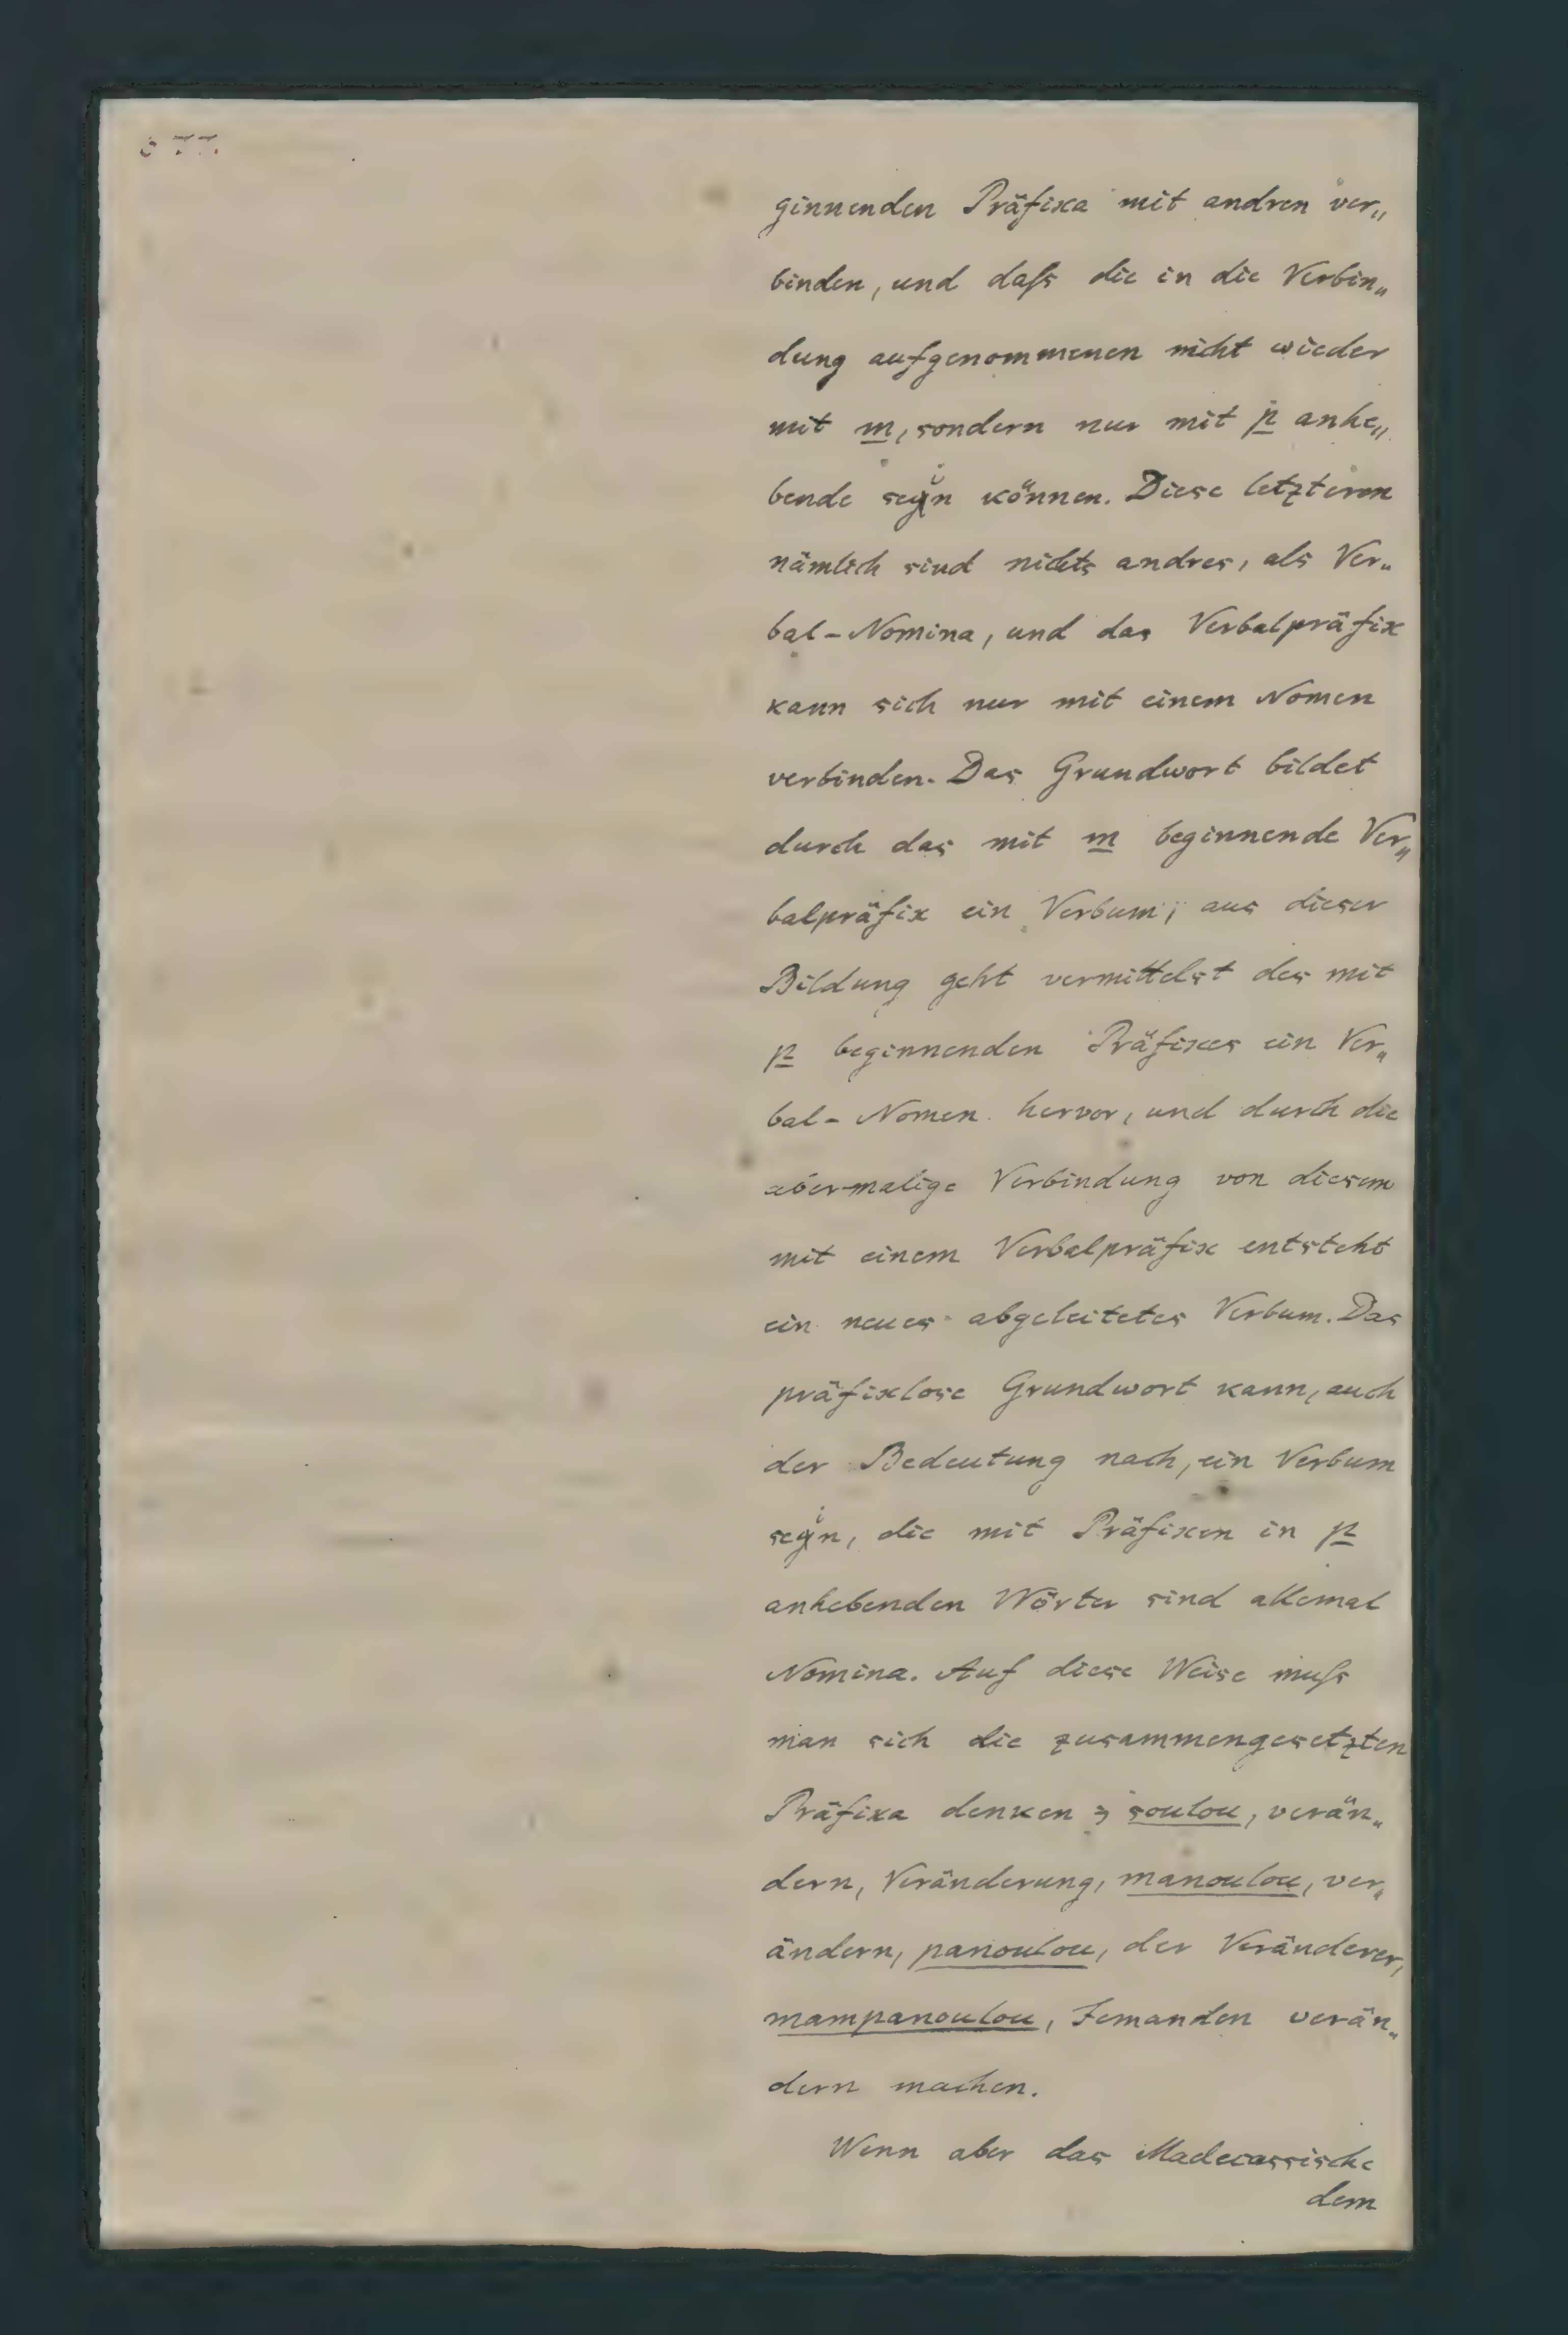 ginnenden Präfixa mit andren ver„
binden, und daſs die in die Verbin„
dung aufgenommenen nicht wieder
mit m, sondern nur mit p anhe„
bende sein können. Diese letzteren
nämlich sind nichts andres, als Ver„
bal-Nomina, und das Verbalpräfix
kann sich nur mit einem Nomen
verbinden. Das Grundwort bildet
durch das mit m beginnende Ver„
balpräfix ein Verbum; aus dieser
Bildung geht vermittelst des mit
p beginnenden Präfixes ein Ver„
bal-Nomen hervor, und durch die
abermalige Verbindung von diesem
mit einem Verbalpräfix entsteht
ein neues abgeleitetes Verbum. Das
präfixlose Grundwort kann, auch
der Bedeutung nach, ein Verbum
sein, die mit Präfixen in p
anhebenden Wörter sind allemal
Nomina. Auf diese Weise muſs
man sich die zusammengesetzten
Präfixa denken; soulou, verän„
dern, Veränderung, manoulou, ver„
ändern, panoulou, der Veränderer,
mampanoulou, Jemanden verän„
dern machen.
Wenn aber das Madecassische
dem